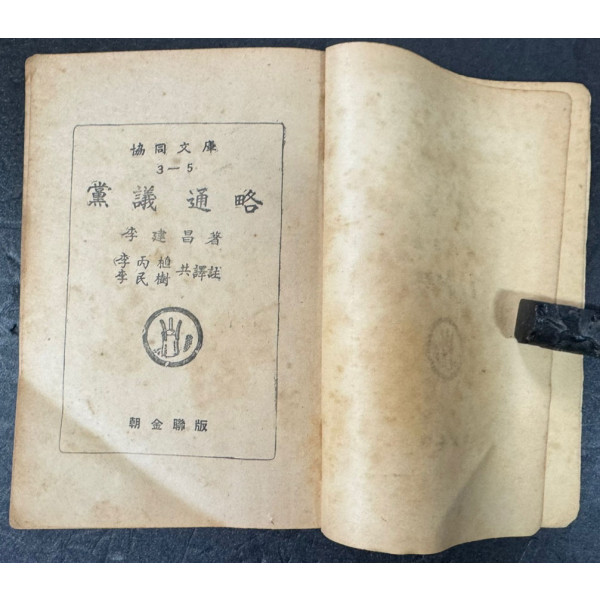 協同文庫
3—5
黨議通略
李建昌著
李丙植
李民樹 共譯註
朝金聯版